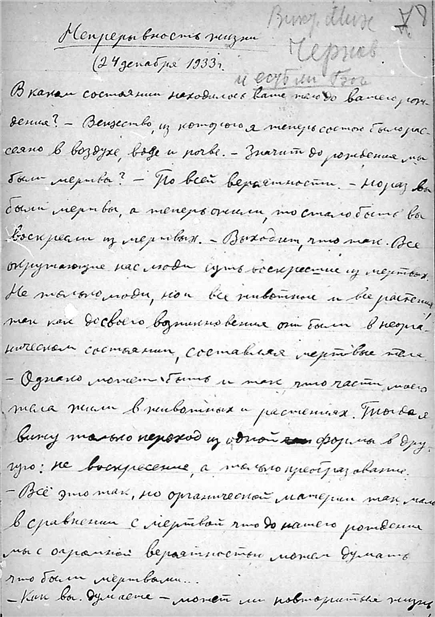 Викт. Мих
Чернов
и есть ли Бог
78
Непрерывность жизни
(24 декабря 1933 г.
В каком состоянии находилось ваше тело до вашего рож-
дения? – Вещество, из которого я теперь состою было рас-
сеяно в воздухе, воде и почве. – Значит до рождения мы
были мертвы? – По всей вероятности. – Но раз вы
были мертвы, а теперь ожили, то стало быть вы
воскресли из мертвых. – Выходит, что так. Все
окружающие нас люди суть воскресшие из мертвых.
Не только люди, но и все животные и все растения,
так как до своего возникновения они были в неорга-
ническом состоянии, составляя мертвые тела
– Однако может быть и так, что части моего
тела жили в животных и растениях. Тогда я
вижу только переход из одной формы в дру-
гую: не воскресение, а только преобразование.
– Всё это так, но органической материи так мало
в сравнении с мертвой что до нашего рождения
мы с огромной вероятностью можем думать
что были мертвыми...
– Как вы думаете – может ли повториться жизнь,